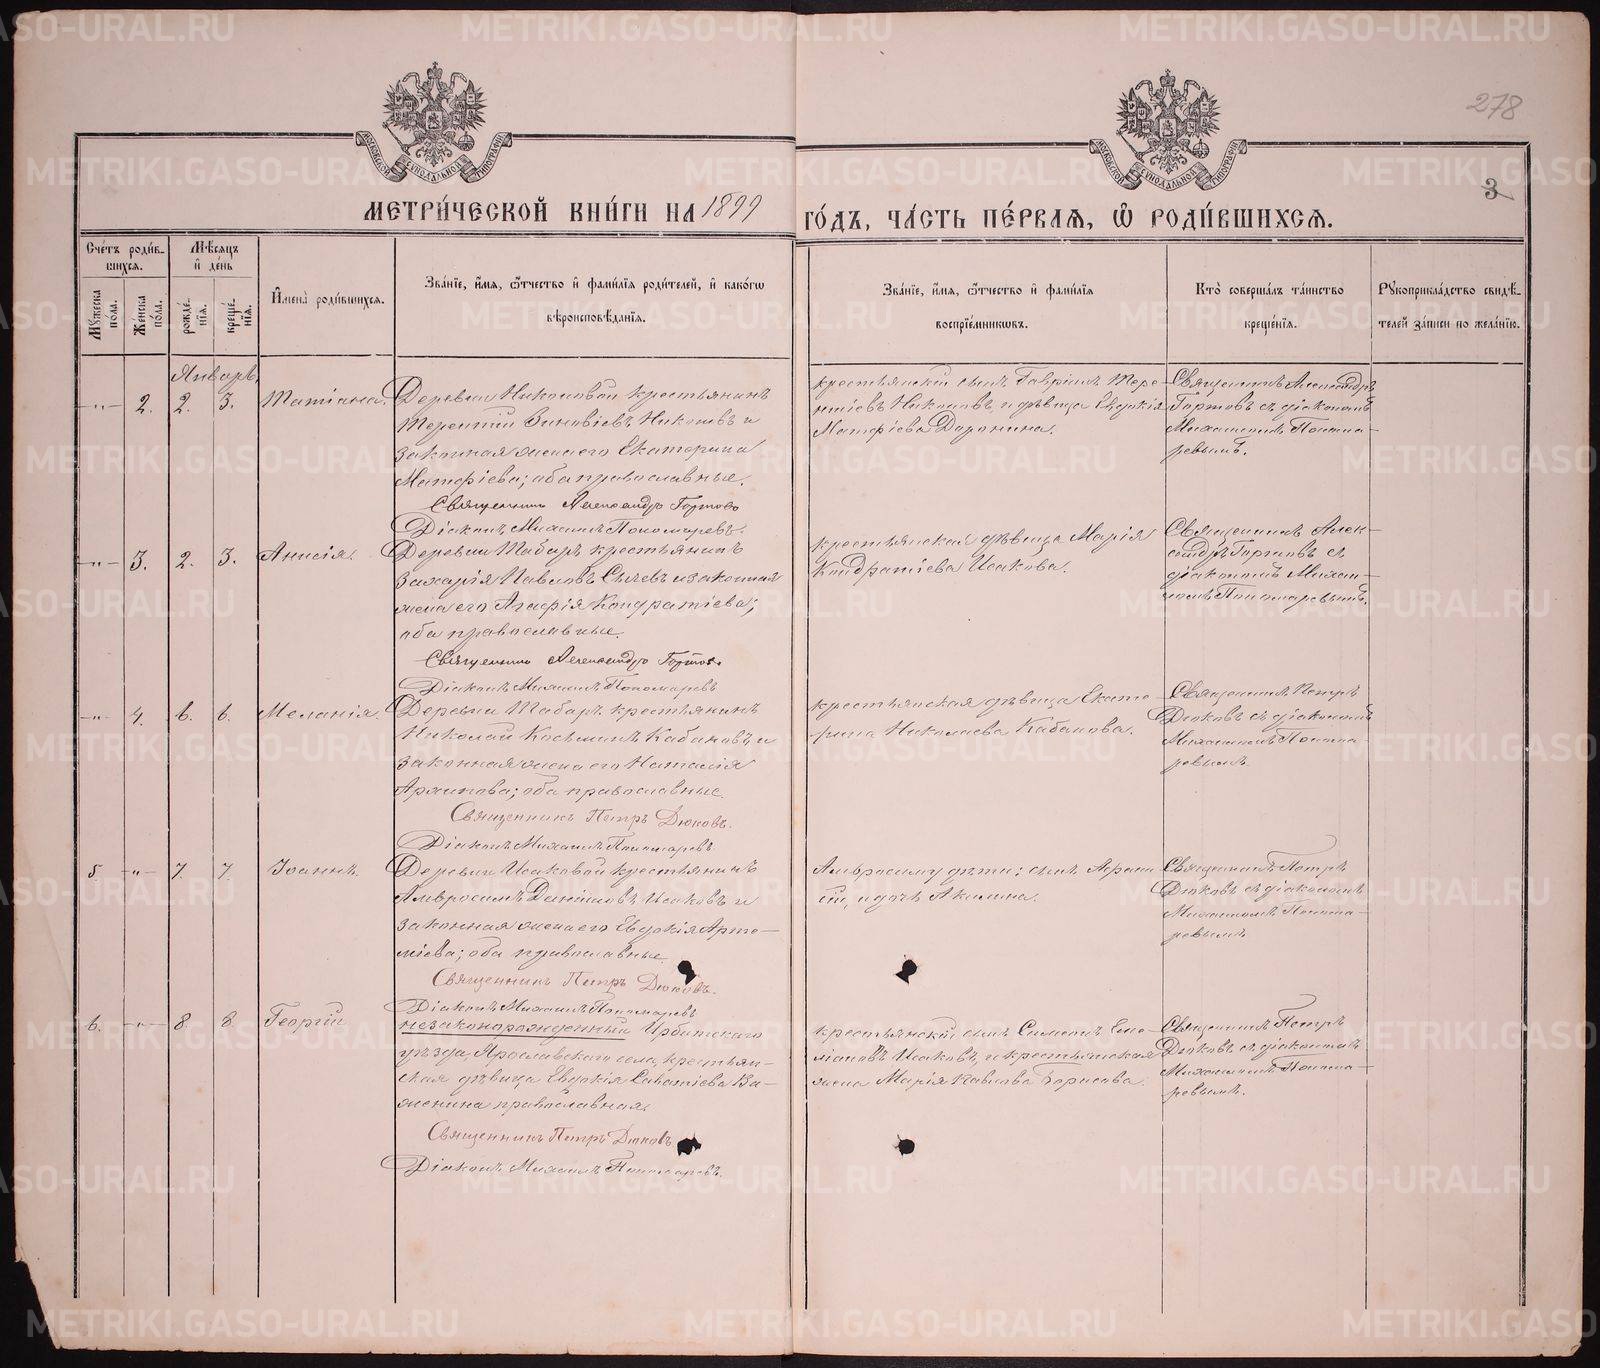 278
3
МЕТРИ́ЧЕСКОЙ КНИ́ГИ НА 1899 ГО́ДЪ, ЧА́СТЬ ПЕ́РВАЯ, Ѿ РОДИ́ВШИХСЯ.
Сче́тъ роди́вшихся.
Мꙋ́жеска по́ла.
Же́нска по́ла.
Мѣ́сяцъ и҆ де́нь
рожде́нїя.
креще́нїя.
И҆мена̀ роди́вшихся.
Зва́нїе, и҆́мя, ѻ҆́тчество и҆ фами́лїя роди́телей, и҆ како́гѡ
вѣроисповѣ́данїя.
Зва́нїе, и҆́мя, ѻ҆́тчество и҆ фами́лїя
воспрїе́мникѡвъ.
Кто̀ соверша́лъ та́инство
креще́нїя.
Рꙋкоприкла́дство свидѣ́телей за́писи по жела́нїю.
Январь.
-"- 2. 2. 3. Татіана.
Деревни Никоновой крестьянинъ
Терентій Зиновіевъ Никоновъ и
законная жена его Екатерина
Матфіева; оба православные.
Священникъ Александръ Гортовъ
Діаконъ Михаилъ Пономаревъ.
крестьянскій сынъ Гавріилъ Тере-
нтіевъ Никоновъ, и дѣвица Евдокія
Матфіева Доронина.
Священникъ Александръ
Гортовъ съ діакономъ
Михаиломъ Понома-
ревымъ.
-"- 3. 2. 3. Анисія.
Деревни Табаръ крестьянинъ
Захарія Павловъ Сычевъ и законная
жена его Агафія Кондратіева;
оба православные.
Священникъ Александръ Гортовъ
Діаконъ Михаилъ Пономаревъ
крестьянская дѣвица Марія
Кондратіева Исакова.
Священникъ Алек-
сандръ Гортовъ съ
діакономъ Михаи-
ломъ Пономаревымъ.
-"- 4. 6. 6. Меланія.
Деревни Табаръ крестьянинъ
Николай Косминъ Кабановъ, и
законная жена его Наталія
Архипова; оба православные.
Священникъ Петръ Дюковъ.
Діаконъ Михаилъ Пономаревъ
крестьянская дѣвица Екате-
рина Николаева Кабанова.
Священникъ Петръ
Дюковъ съ діакономъ
Михаиломъ Понома-
ревымъ.
5 -"- 7. 7. Іоаннъ.
Деревни Исаковой крестьянинъ
Амвросимъ Даніиловъ Исаковъ и
законная жена его Евдокія Арте-
міева; оба православные.
Священникъ Петръ Дюковъ.
Діаконъ Михаилъ Пономаревъ
Амвросиму дѣти: сынъ
и дочь Акилина.
Священникъ Петръ
Дюковъ съ діакономъ
Михаиломъ Понома-
ревымъ.
6. -"- 8. 8. Георгій
незаконорожденный Ирбитскаго
уѣзда, Ярославскаго села, крестьян-
ская дѣвица Евдокія Саватіева Ва-
женина православная.
Священникъ Петръ Дюковъ
Діаконъ Михаилъ Пономаревъ.
крестьянскій сынъ Симеонъ Еме-
ліановъ Исаковъ, и крестьянская
жена Марія Павлова Борисова.
Священникъ Петръ
Дюковъ съ діакономъ
Михаиломъ Понома-
ревымъ.
METRIKI.GASO-URAL.RU